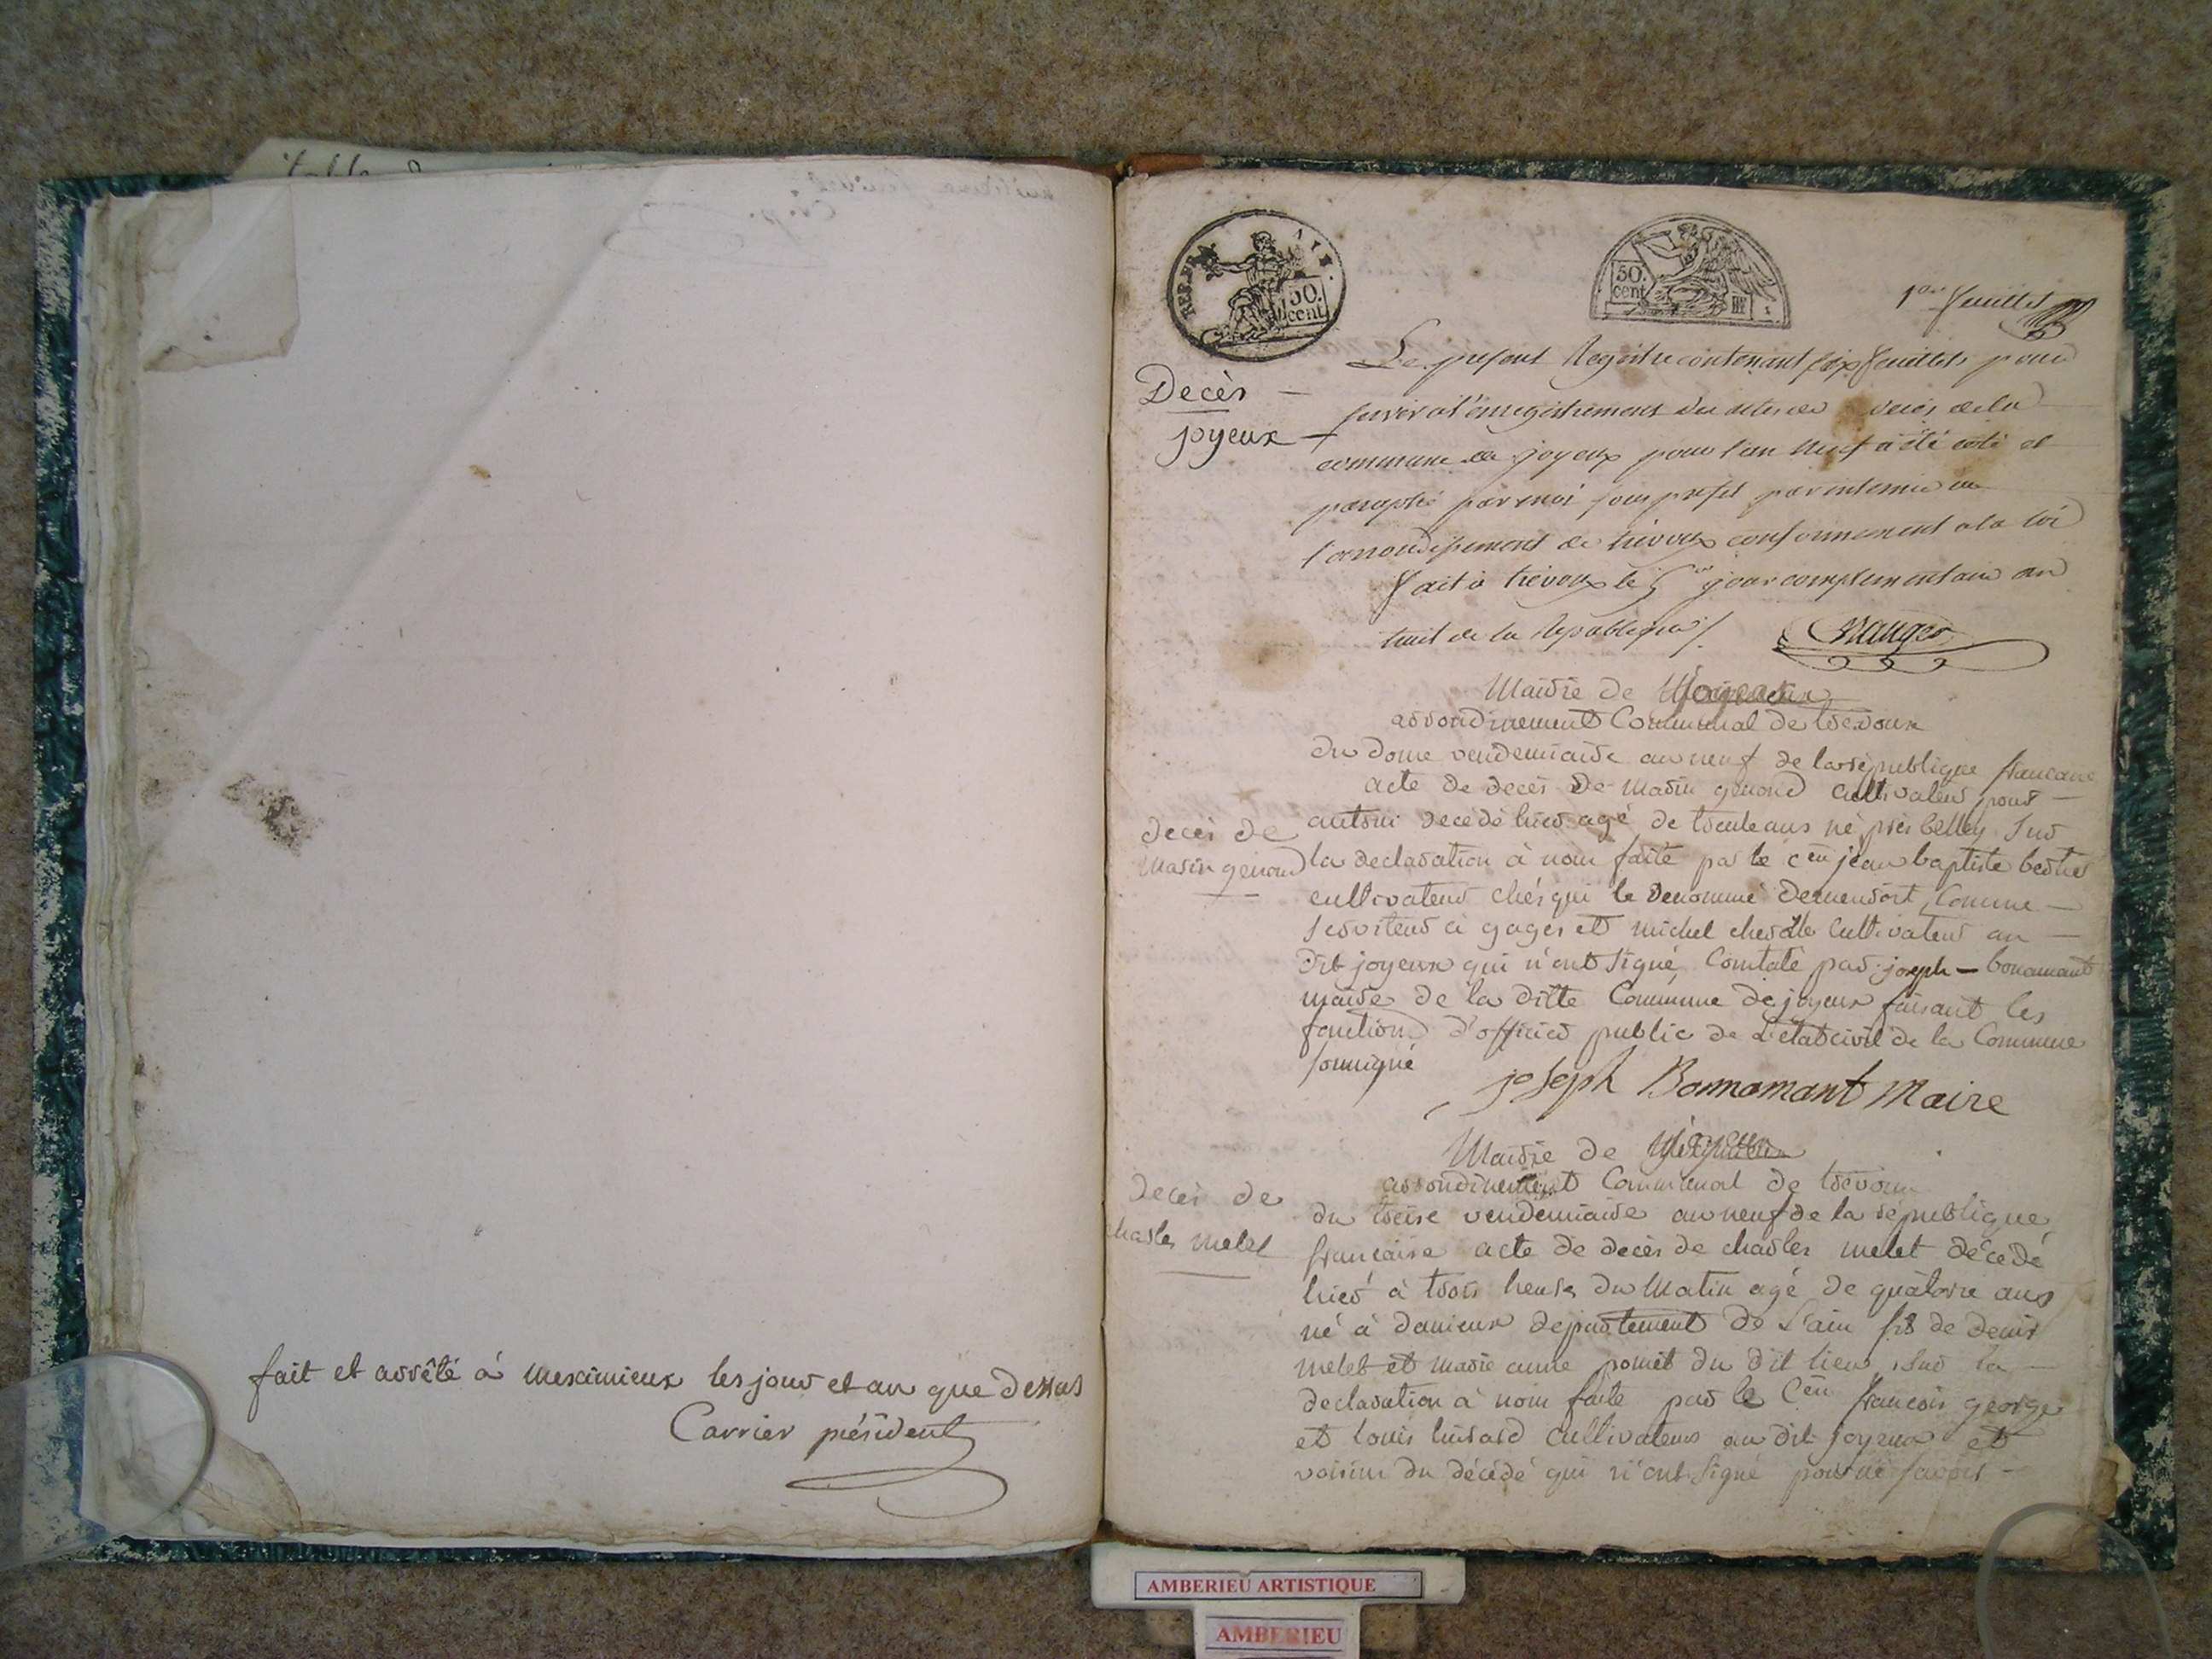 fait et arrêté à meximieux les jour et an que dessus
Carrier président
REP. FRA. AIN.
50.
cent.
50.
cent
1er feuillet
Decès
joyeux
Le present Registre contenant six feuillets pour
servir a l'enregistrement des actes de decès de la
commune de joyeux pour l'an neuf a été coté et
paraphé par moi sous prefet par interim de
l'arrondissement de trevoux conformement a la loi
fait à trevoux le 5e jour complementaire an
huit de la Republique /.
Mairie de
arrondinement Communal de trevoux
du doure vendemiaire an neuf de la république francaise
acte de decès de Marin genond cultivateur pour
decès de
Marin genond
antoni decédé hier agé de trente ans né près belley Sur
la declaration à nous faite par le cen jean baptiste
cultivateur chés qui le denommé demeuroit Comme
serviteur à gages et michel cultivateur au
dit joyeux qui n'ont signé Contaté par joseph bonamant
maire de la ditte Commune de joyeux faisant les
fonction d'officier public de L'etat civil de la Commune
soussigné
joseph Bonnamant Maire
Mairie de
arrondinement Communal de trevoux
decès de
charles melet
du treise vendemiaire an neuf de la république
francaise acte de decès de charles melet décedé
hier à trois heures du Matin agé de quatorze ans
né à danieux departement de L'ain fils de denis
melet et marie anne pomet du dit lieu, sur la
declaration à nous faite par le Cen francois george
et louis luisard cultivateurs au dit joyeux et
voisins du décédé qui n'ont signé pour ne savoir
AMBERIEU ARTISTIQUE
AMBERIEU